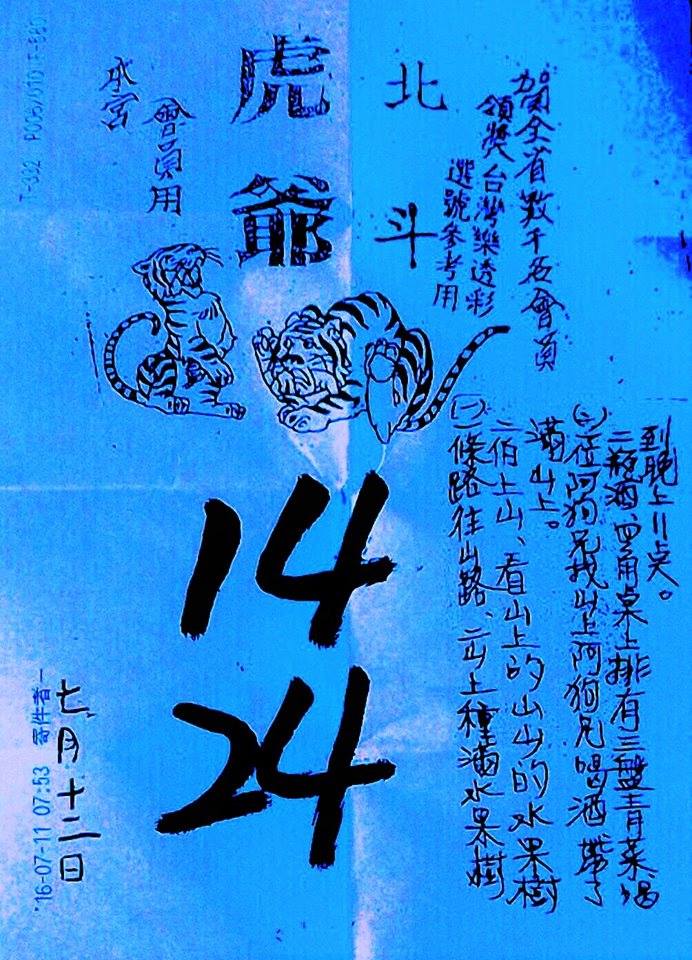 賀全省數千名會員
領獎台灣樂透彩
選號參考用
北斗
虎爺
會員用
14
24
(一)條路往山路、山上種滿水果樹
二伯上山、看山上的山山的水果樹
滿山上。
(二)位阿狗兄找山上阿狗兄喝酒帶了
二瓶酒、四角桌上排有三盤青菜喝
到晚上11点。
七月十二日
'16-07-11 07:53 寄件者-